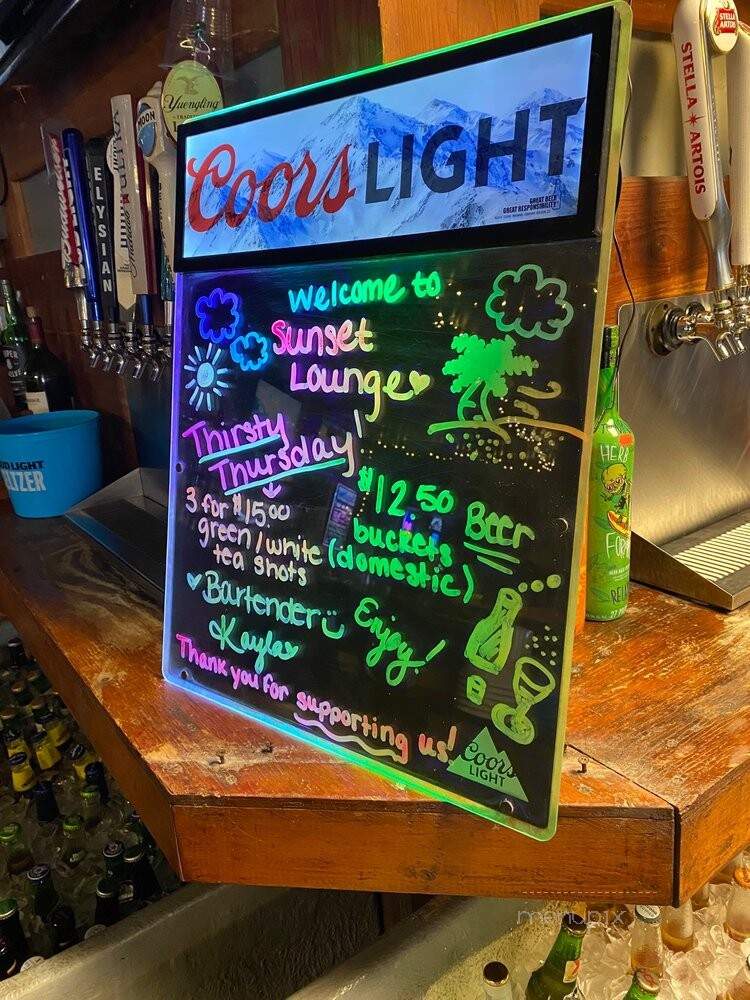 Coors LIGHT
GREAT BEER
GREAT RESPONSIBILITY
Welcome to
Sunset
Lounge
Thirsty
Thursday!
3 for $15.00
green/white
tea shots
$12.50
buckets
(domestic)
Beer
Bartender
Kayla
Enjoy!
Thank you for supporting us!
Coors
LIGHT
Yuengling
MOON
ELYSIAN
ULTRA
STELLA ARTOIS
STELLA
ARTOIS
LIGHT
HERB
menupix